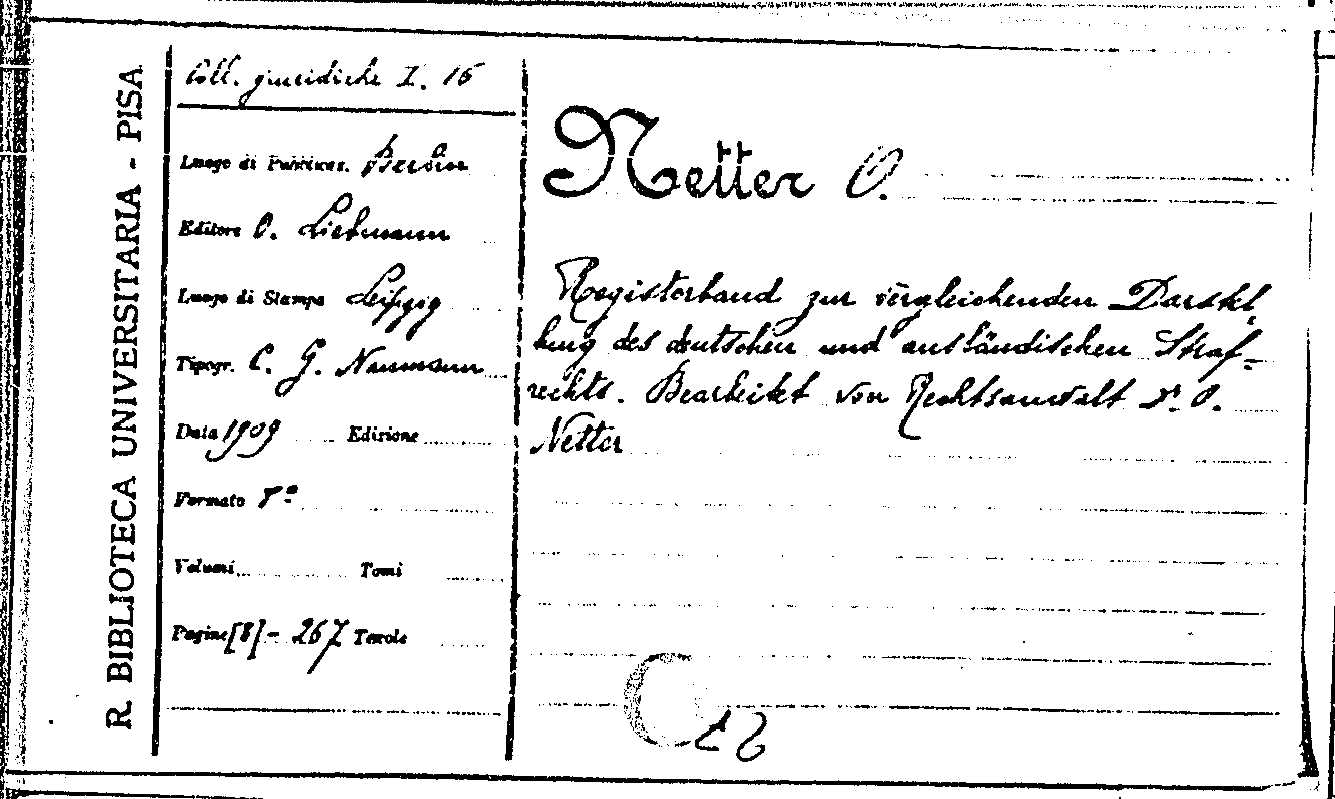 R. BIBLIOTECA UNIVERSITARIA - PISA
Coll. giuridiche I. 16
Luogo di Pubblicaz. Berlin
Editore O. Liebmann
Luogo di Stampa Leipzig
Tipogr. C. G. Naumann
Data 1909 Edizione
Formato 8°
Volumi Tomi
Pagine [8]-267 Tavole
Netter O.
Registerband zur vergleichenden Darstel-
lung des deutschen und ausländischen Straf=
rechts. Bearbeitet von Rechtsanwalt Dr. O.
Netter